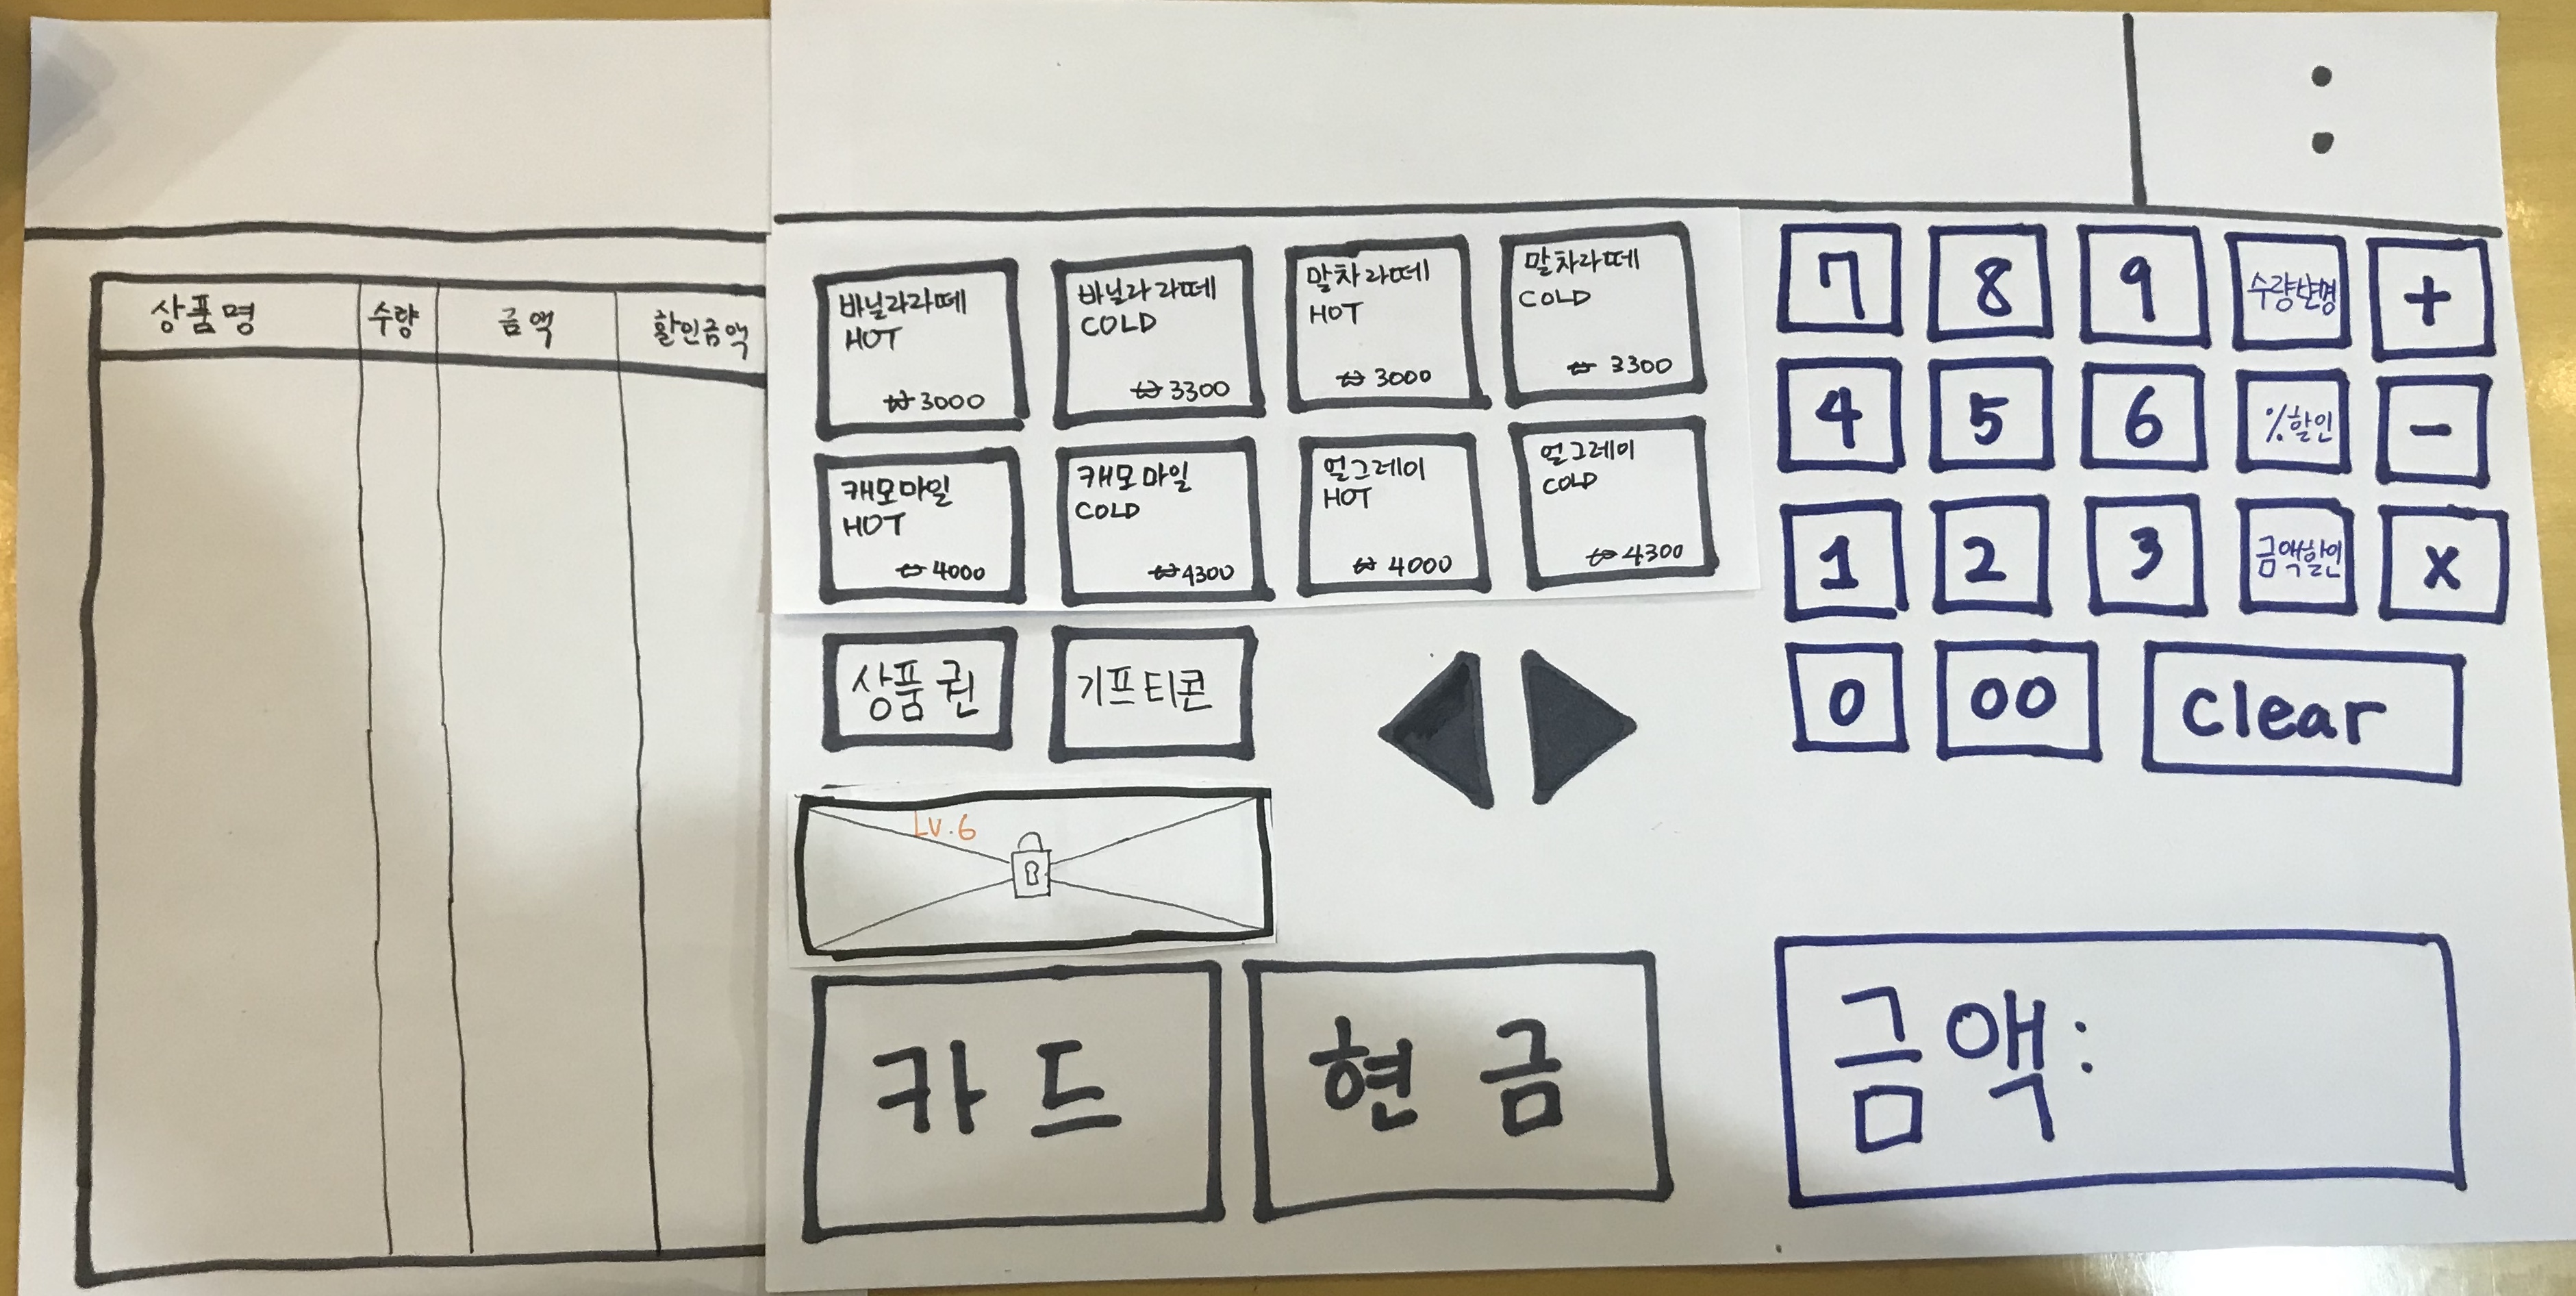 상품명 수량 금액 할인금액
바닐라라떼
HOT
₩3000
바닐라라떼
COLD
₩3300
말차라떼
HOT
₩3000
말차라떼
COLD
₩3300
캐모마일
HOT
₩4000
캐모마일
COLD
₩4300
얼그레이
HOT
₩4000
얼그레이
COLD
₩4300
상품권 기프티콘
Lv.6
카드 현금
7 8 9 +
4 5 6 %할인 -
1 2 3 금액할인 x
0 00 clear
금액: